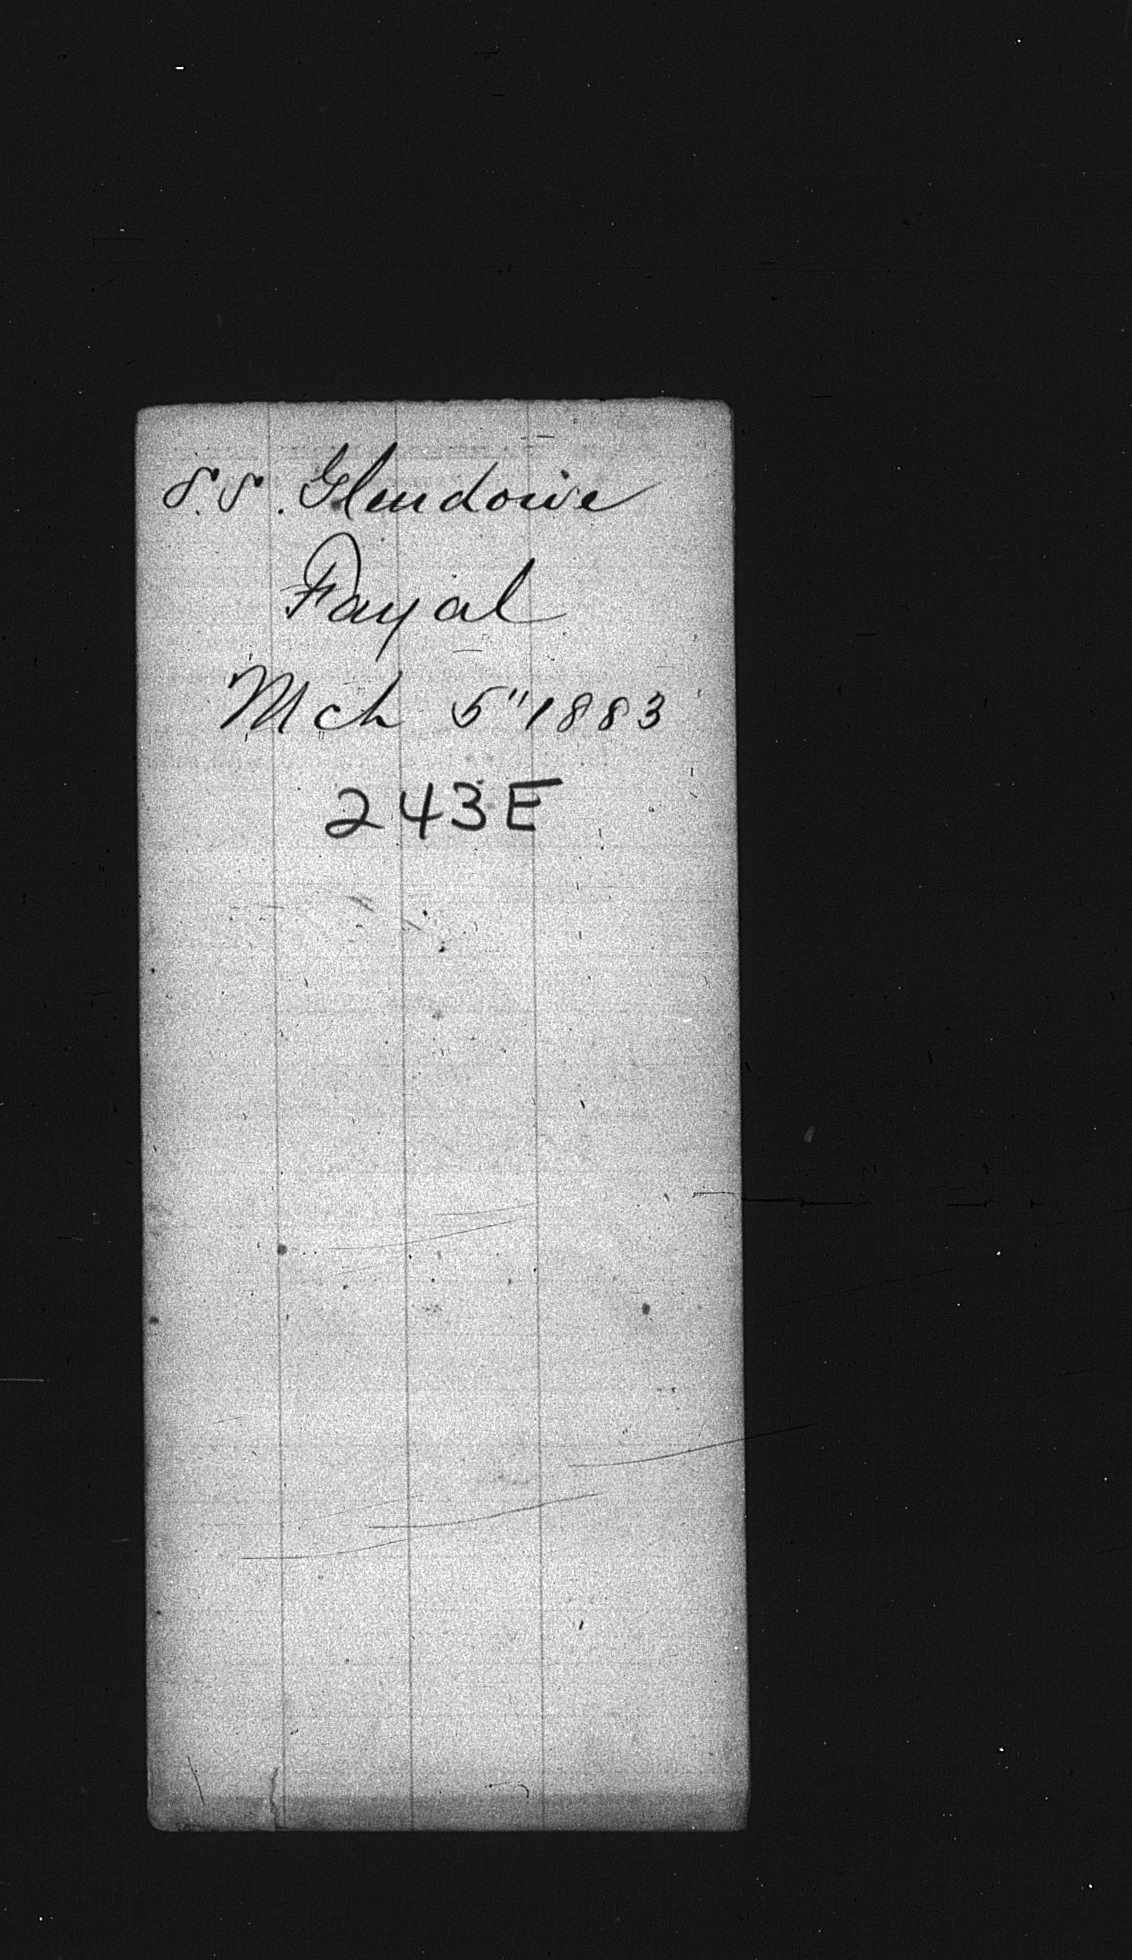 S.S. Glendowe
Fayal
Mch 5" 1883
243E